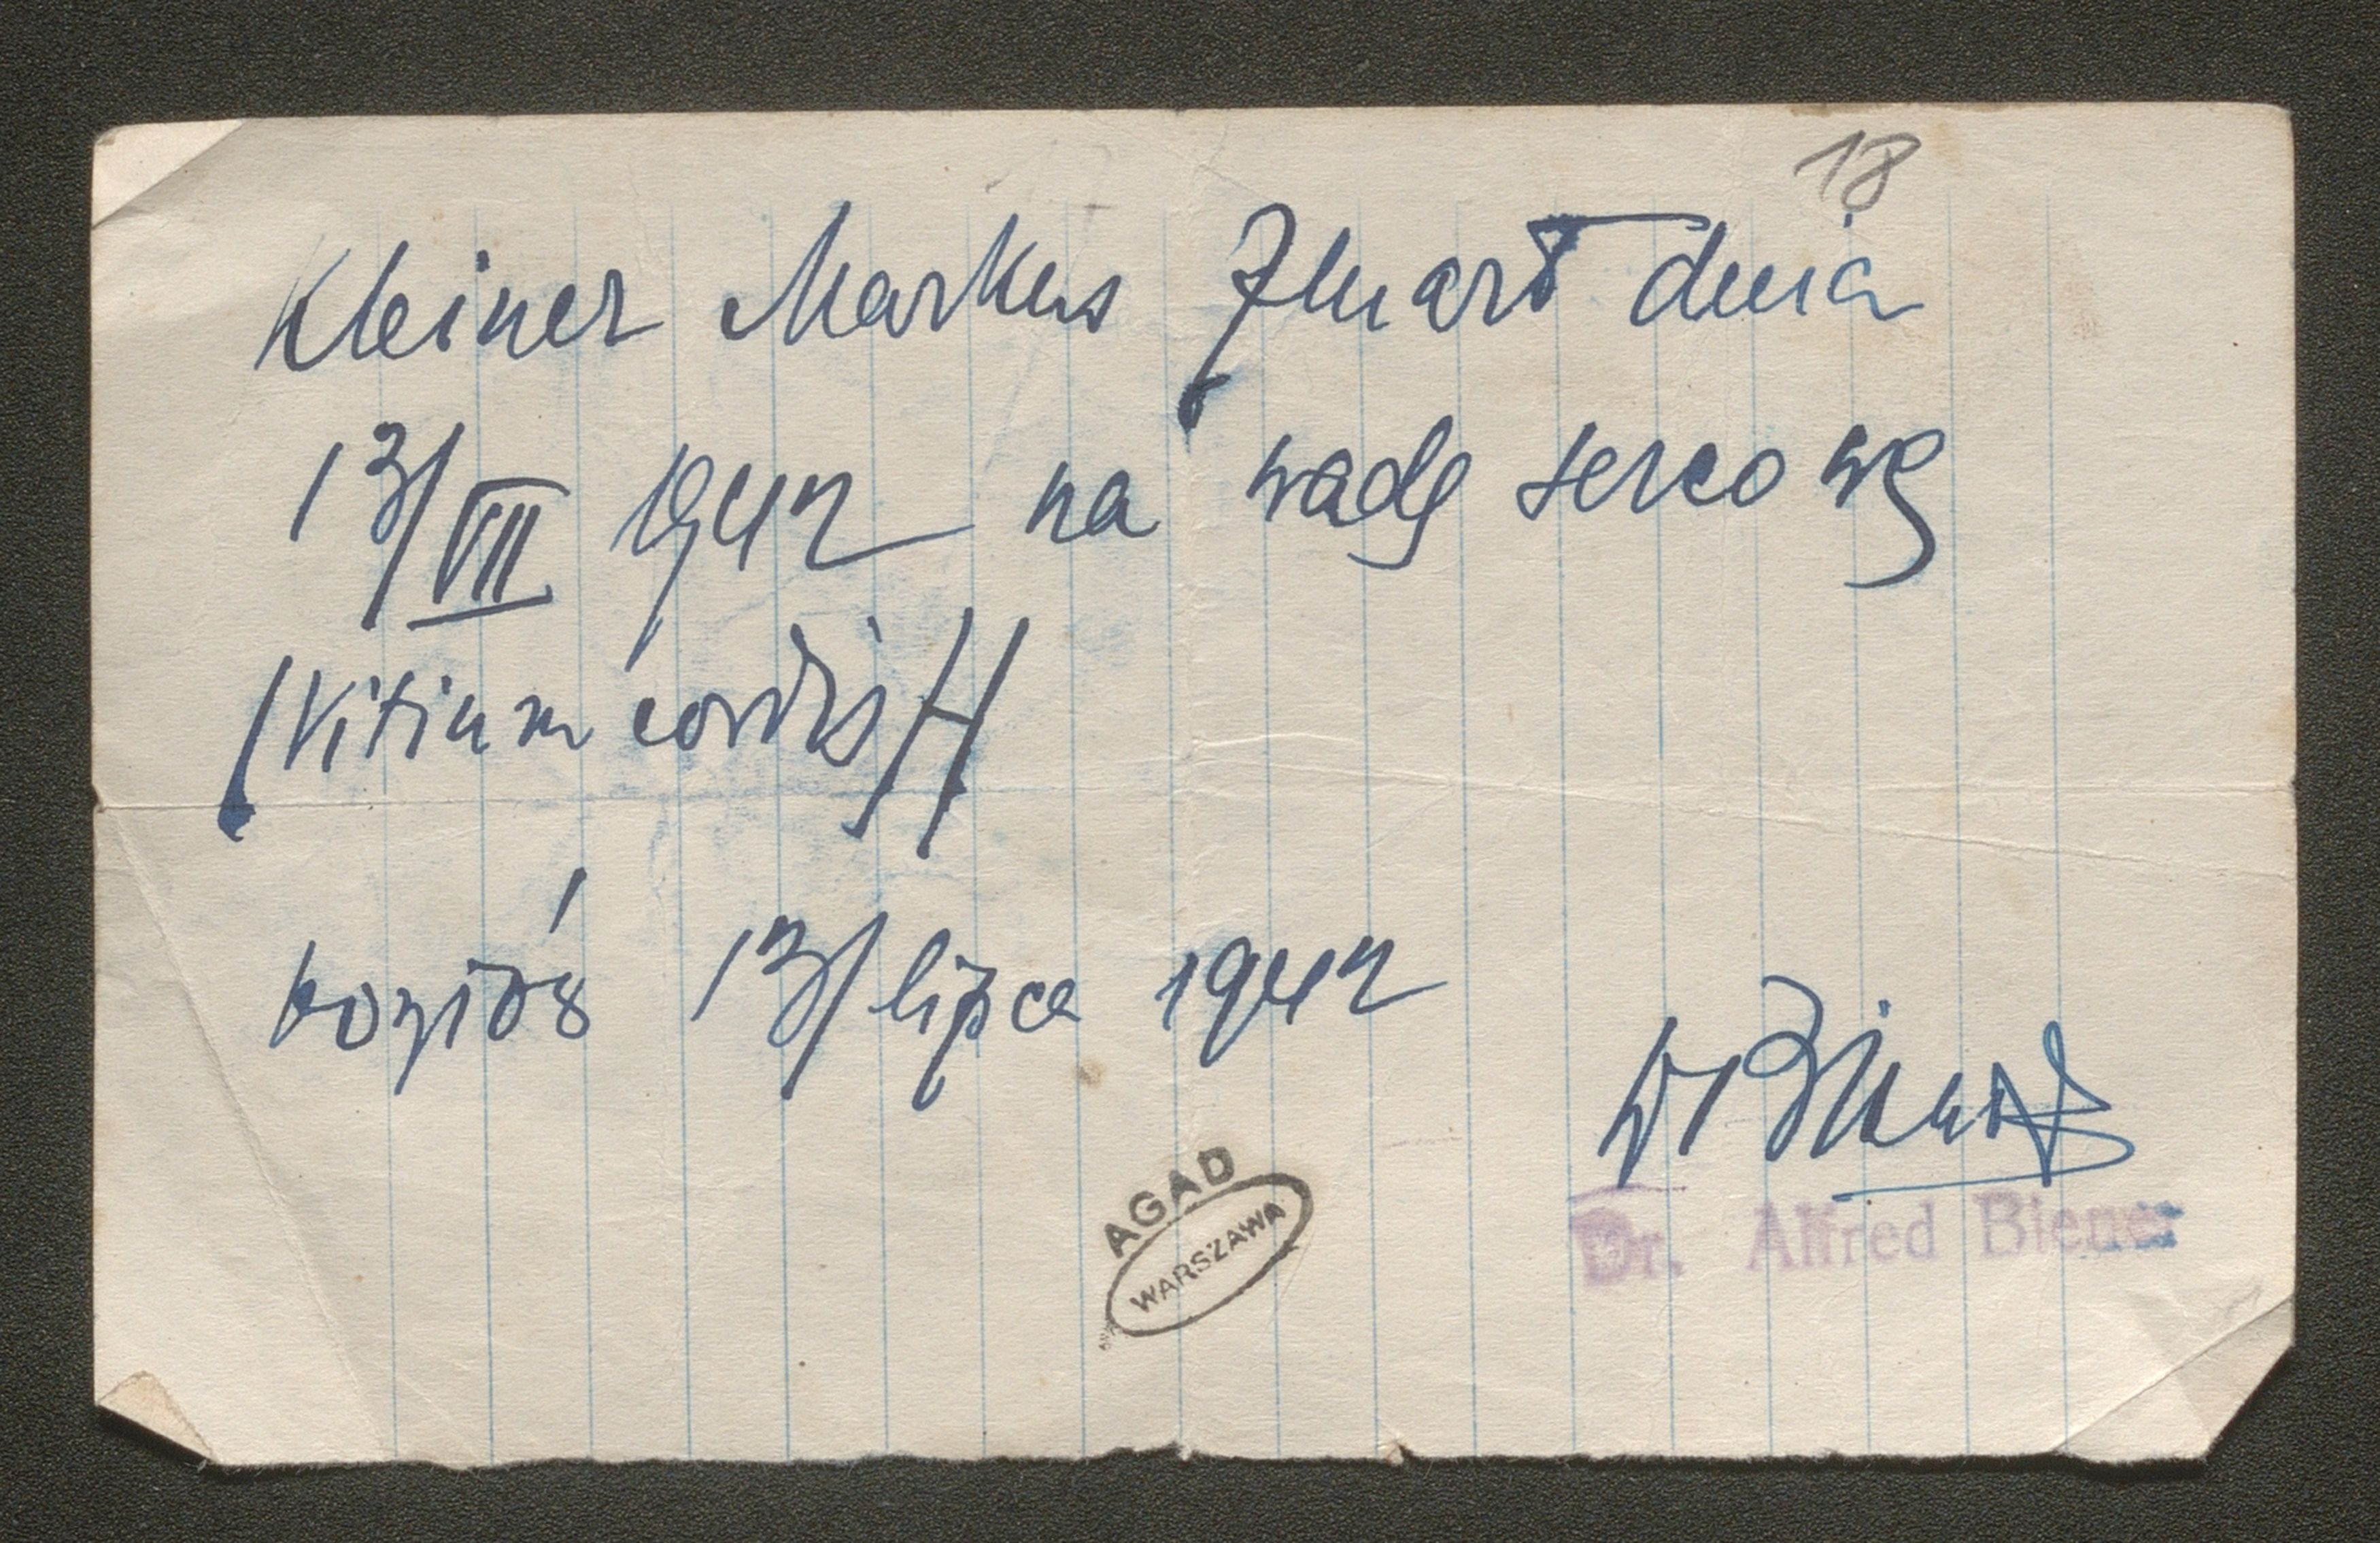 18
Kleiner Markus Zmarł dnia
13/VII 1942 na wadę sercową
/Vitium cordis//
13/lipca 1942
Dr Biener
Dr. Alfred Biener
AGAD
WARSZAWA